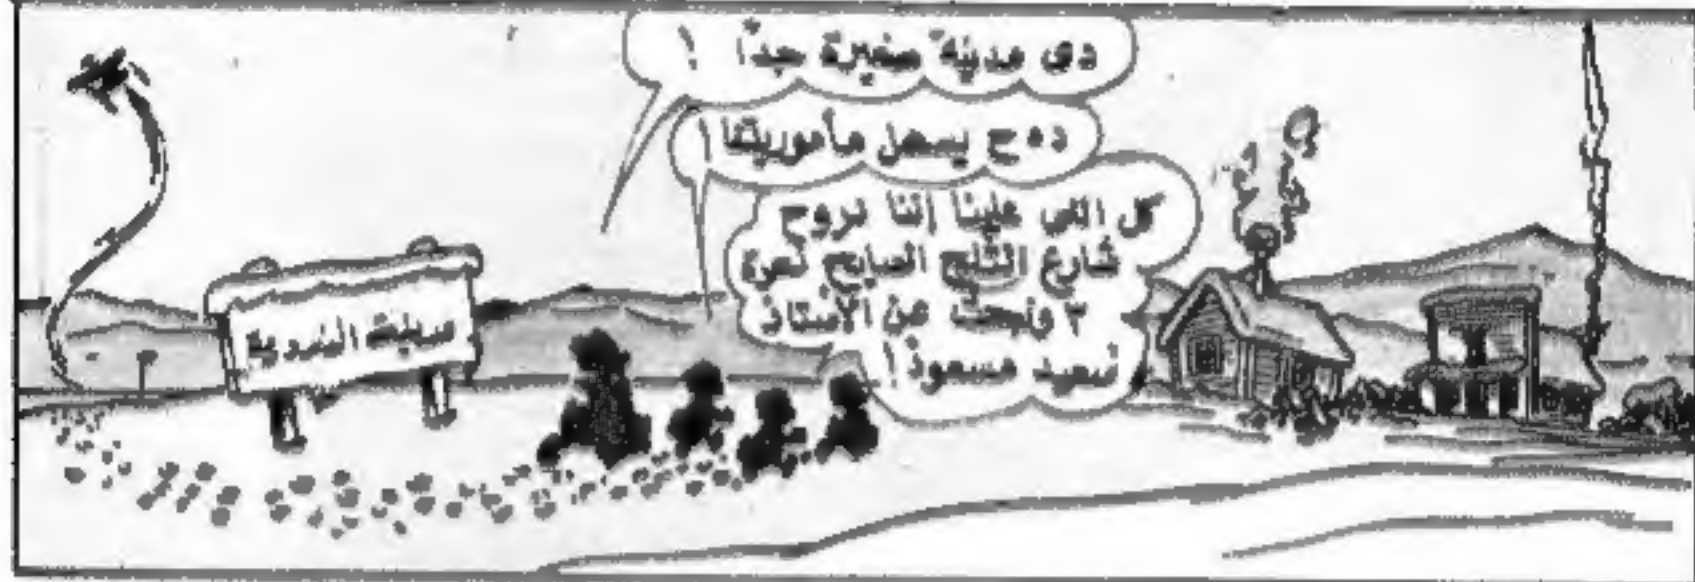 دى مدينة صغيرة جداً !
دەح يسهل مأموريتنا !
كل اللى علينا إننا نروح
شارع الثلج السايح نمرة
٢ ونبحث عن الأستاذ
سعيد مسعود !
مدينة